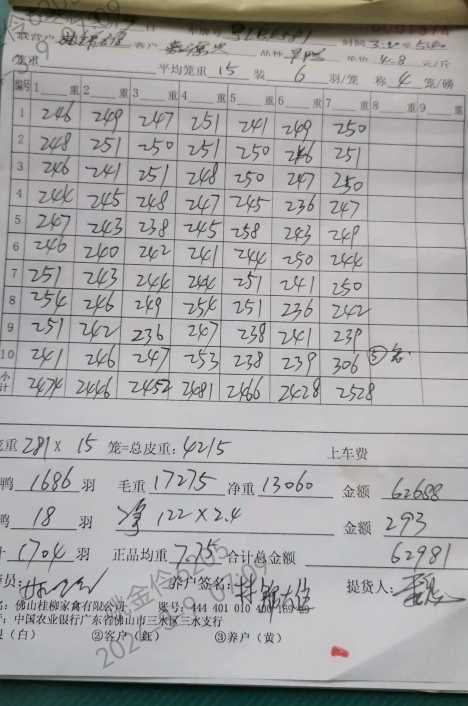 平均笼重 15 装 6 羽/笼 称 4 笼/磅
编号 1 重 2 重 3 重 4 重 5 重 6 重 7 重 8 重 9 重
1 246 249 247 251 241 249 250
2 248 251 250 251 250 246 251
3 246 241 251 248 250 247 250
4 244 245 248 247 245 236 247
5 247 243 238 245 258 243 249
6 246 240 242 241 244 250 244
7 251 243 244 244 251 241 250
8 254 246 249 254 251 236 242
9 251 242 236 247 238 241 239
10 241 246 247 253 238 239 306 ⑤笼
小计 2474 2446 2452 2481 2466 2428 2528
笼重 281 X 15 笼=总皮重: 4215 上车费
鸭 1686 羽 毛重 17275 净重 13060 金额 62688
鸭 18 羽 净 122 X 2.4 金额 293
1704 羽 正品均重 7.75 合计总金额 62981
员: 养户签名: 提货人:
名: 佛山桂柳家禽有限公司 账号: 444 401 010 400
行: 中国农业银行广东省佛山市三水区三水支行
(白) ②客户(红) ③养户(黄)